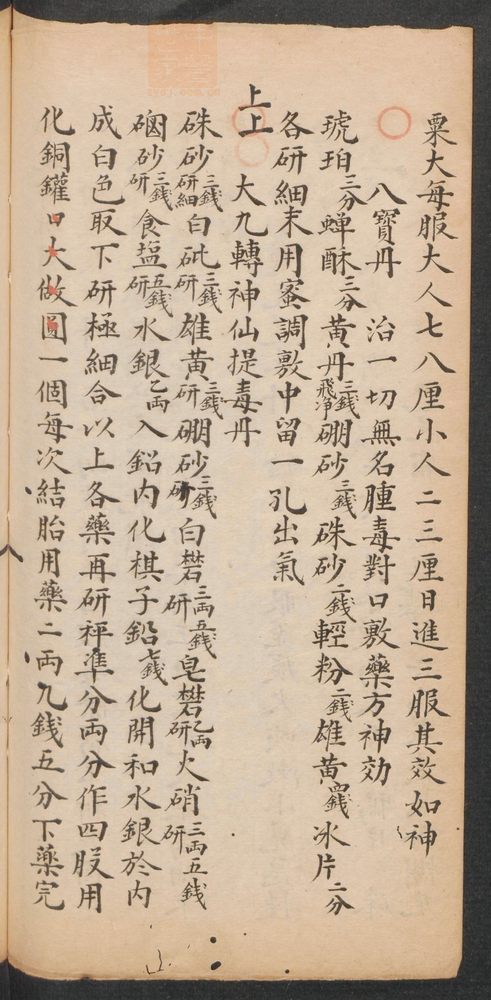 粟大每服大人七八厘小人二三厘日進三服其效如神
八寶丹　治一切無名腫毒對口敷藥方神効
琥珀三分蟬酥三分黃丹三錢飛净硼砂三錢硃砂二錢輕粉二錢雄黃四錢冰片二分
各研細末用蜜調敷中留一孔出氣
上上　大九轉神仙提毒丹
硃砂三錢研細白砒三錢研雄黃三錢研硼砂三錢研白礬三兩五錢研皂礬乙兩研火硝三兩五錢研
硇砂三錢研食塩五錢研水銀乙兩入鉛內化棋子鉛七錢化開和水銀於內
成白色取下研極細合以上各藥再研秤準分兩分作四股用
化銅鑵口大做圓一個每次結胎用藥二両九錢五分下藥完